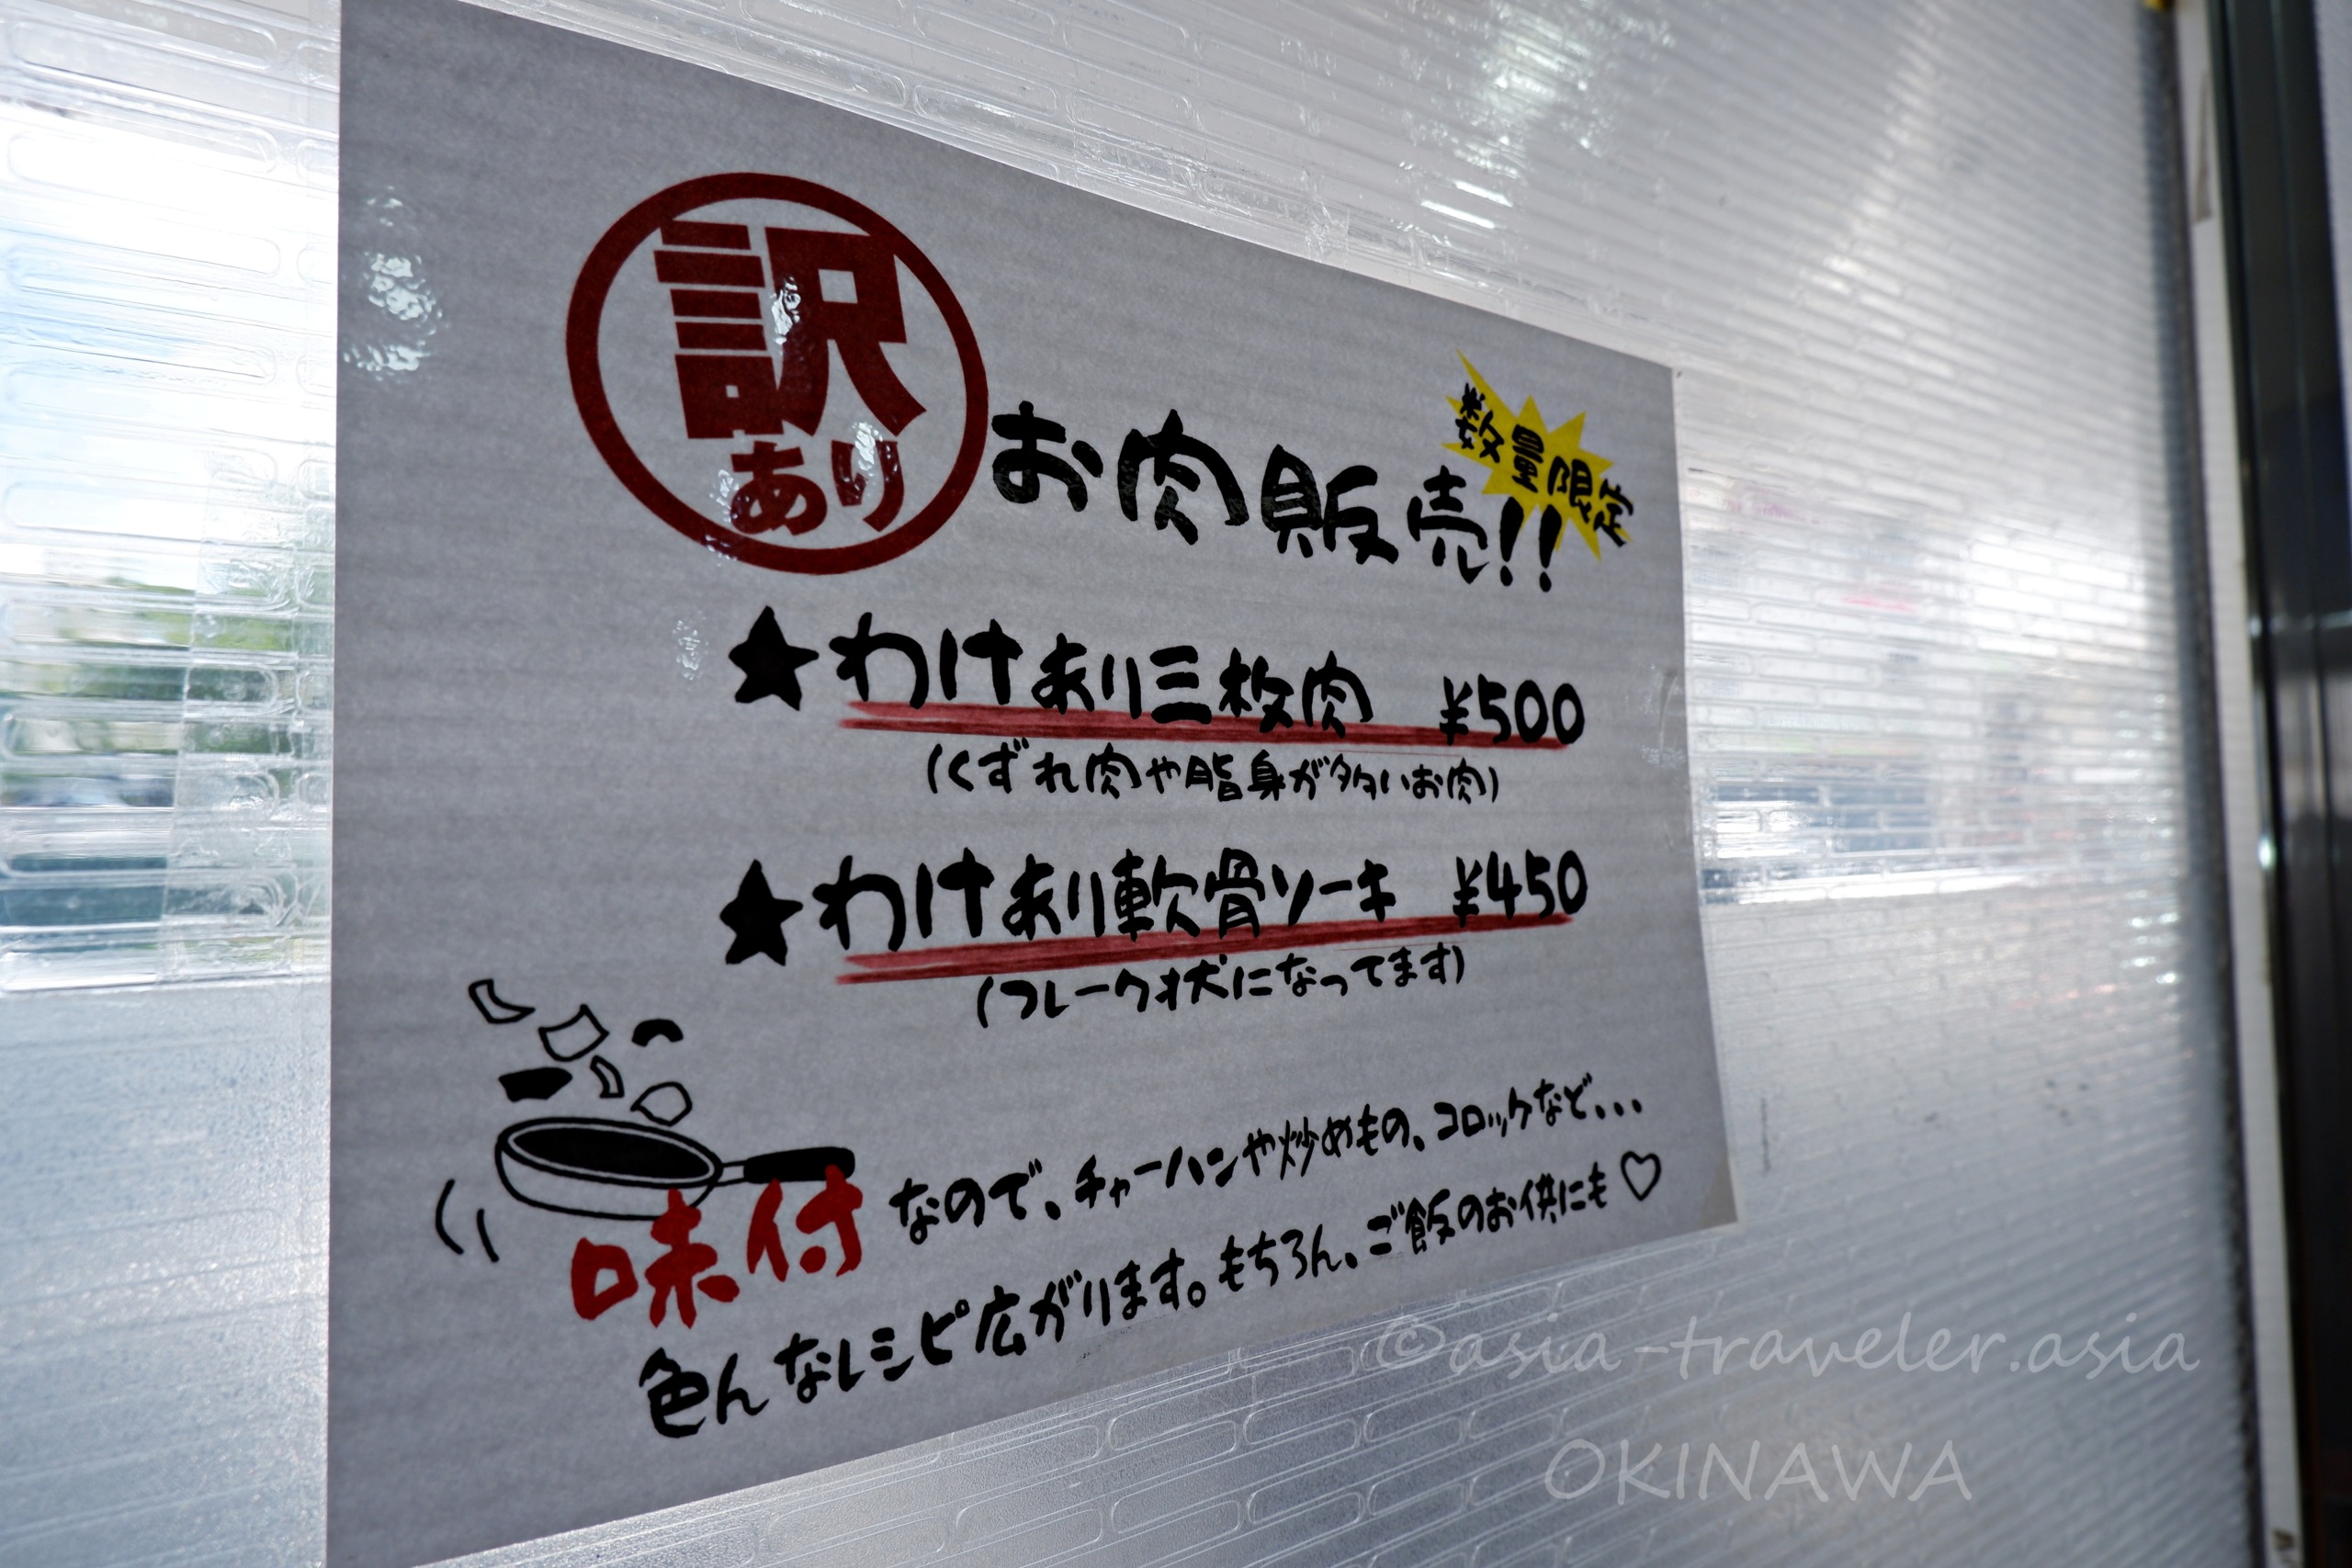 訳あり お肉販売!! 数量限定
★わけあり三枚肉 ¥500
(くずれ肉や脂身が多いお肉)
★わけあり軟骨ソーキ ¥450
(フレーク状になってます)
味付なので、チャーハンや炒めもの、コロッケなど...
色んなレシピ広がります。もちろん、ご飯のお供にも♡
©asia-traveler.asia
OKINAWA